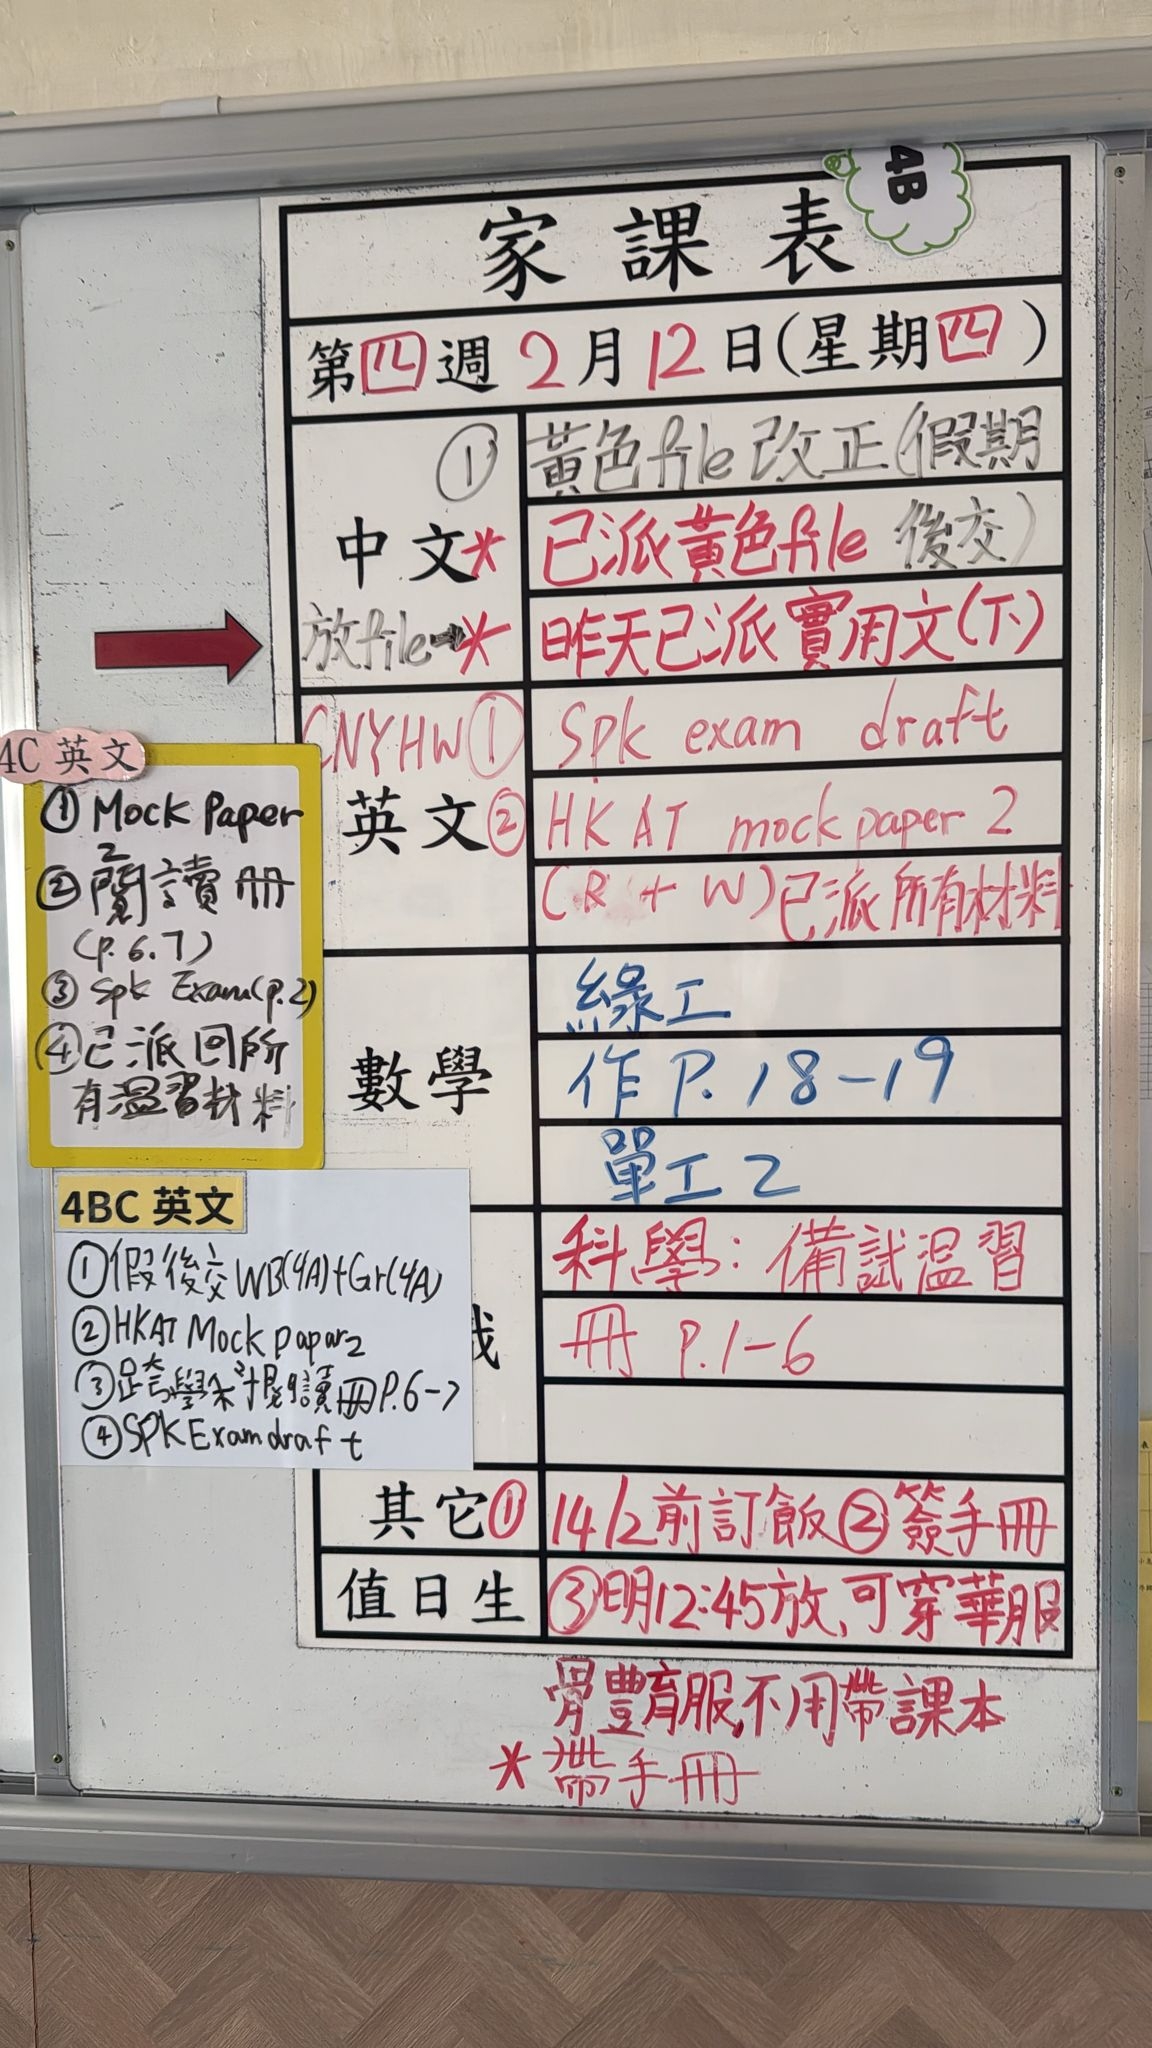 4B
家課表
第四週 2月12日(星期四)
① 黃色file改正(假期
中文* 已派黃色file 後交)
放file→* 昨天已派實用文(下)
CNYHW① Spk exam draft
英文② HKAT mock paper 2
(R + W)已派所有材料
數學
綠工
作P.18-19
單工2
科學：備試温習
冊 P.1-6
其它① 14/2前訂飯②簽手冊
值日生 ③明12:45放、可穿華服
豐育服,不用帶課本
* 帶手冊
4C 英文
① Mock Paper
2
② 閱讀冊
(P.6.7)
③ Spk Exam(P.2)
④ 已派回所
有温習材料
4BC 英文
①假後交WB(4A)+Gr(4A)
②HKAT Mock paper2
③跨學科閱讀冊P.6-7
④SPK Exam draft